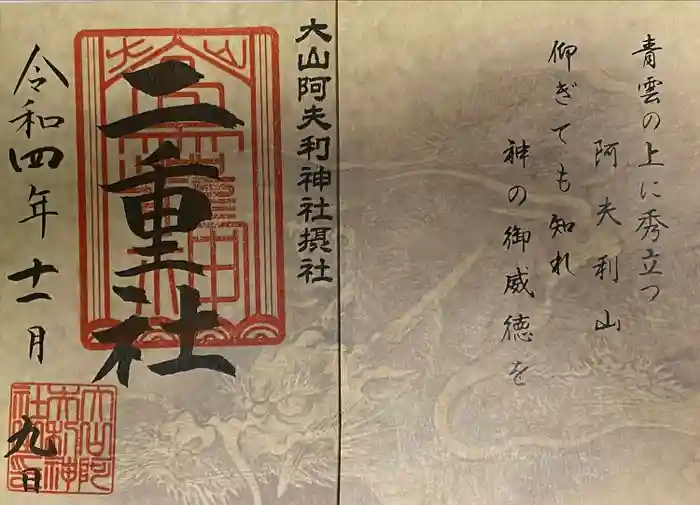 青雲の上に秀立つ
阿夫利山
仰ぎても知れ
神の御威徳を
大山阿夫利神社摂社
二重社
令和四年十一月
九日